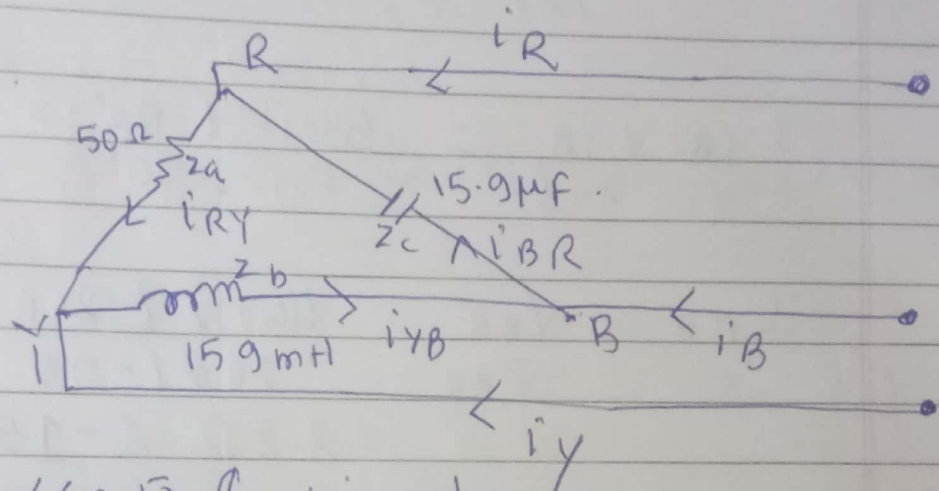 R
iR
50Ω
Za
15.9μF.
iRY
Zc
iBR
Zb
Y
159mH
iYB
B
iB
iy